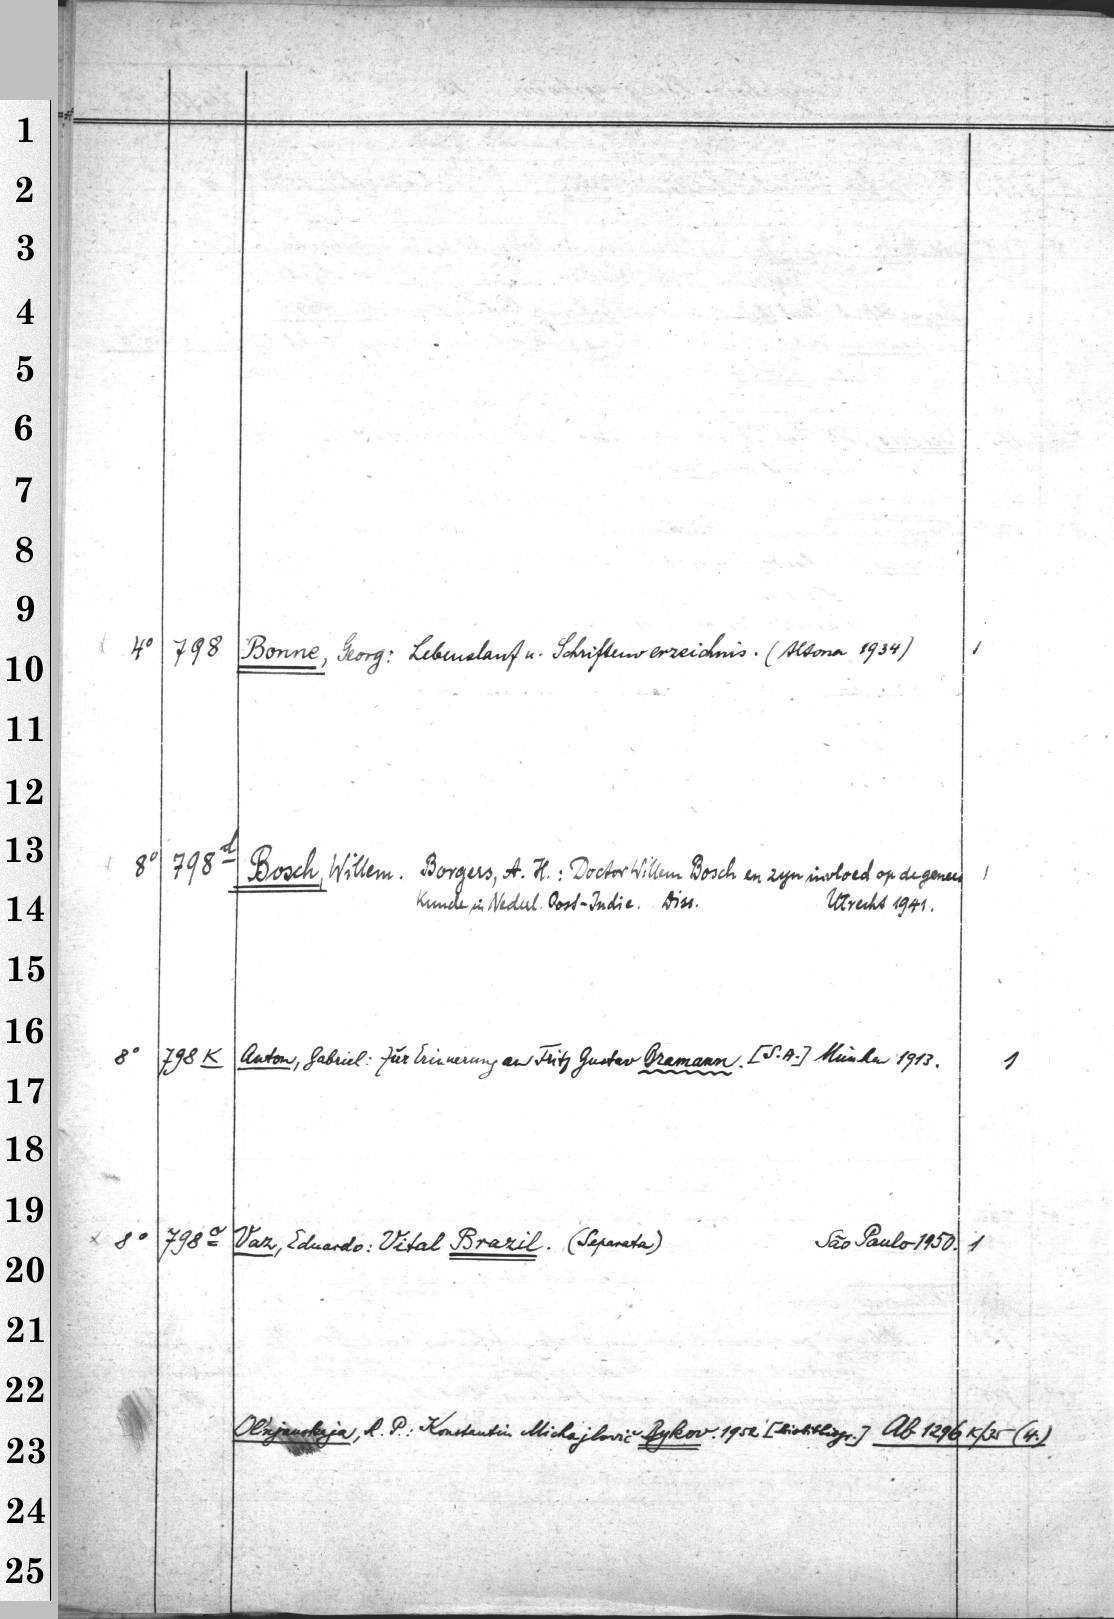 1
2
3
4
5
6
7
8
9
10
11
12
13
14
15
16
17
18
19
20
21
22
23
24
25
4° 798 Bonne, Georg: Lebenslauf u. Schriftenverzeichnis. (Altona 1934) 1
8° 798 d Bosch, Willem. Borgers, A. H.: Doctor Willem Bosch en zyn invloed op de genees 1
Kunde in Nederl. Oost-Indie. Diss. Utrecht 1941.
8° 798 K Anton, Gabriel: Zur Erinnerung an Fritz Gustav Bramann. [S.A.] München 1913. 1
x 8° 798 Vaz, Eduardo: Vital Brazil. (Separata) São Paulo 1950. 1
Ol'njanskaja, P.: Konstantin Michajlovič Bykov. 1952 [Biobibliogr.] Ab 1296 K/35 (4.)